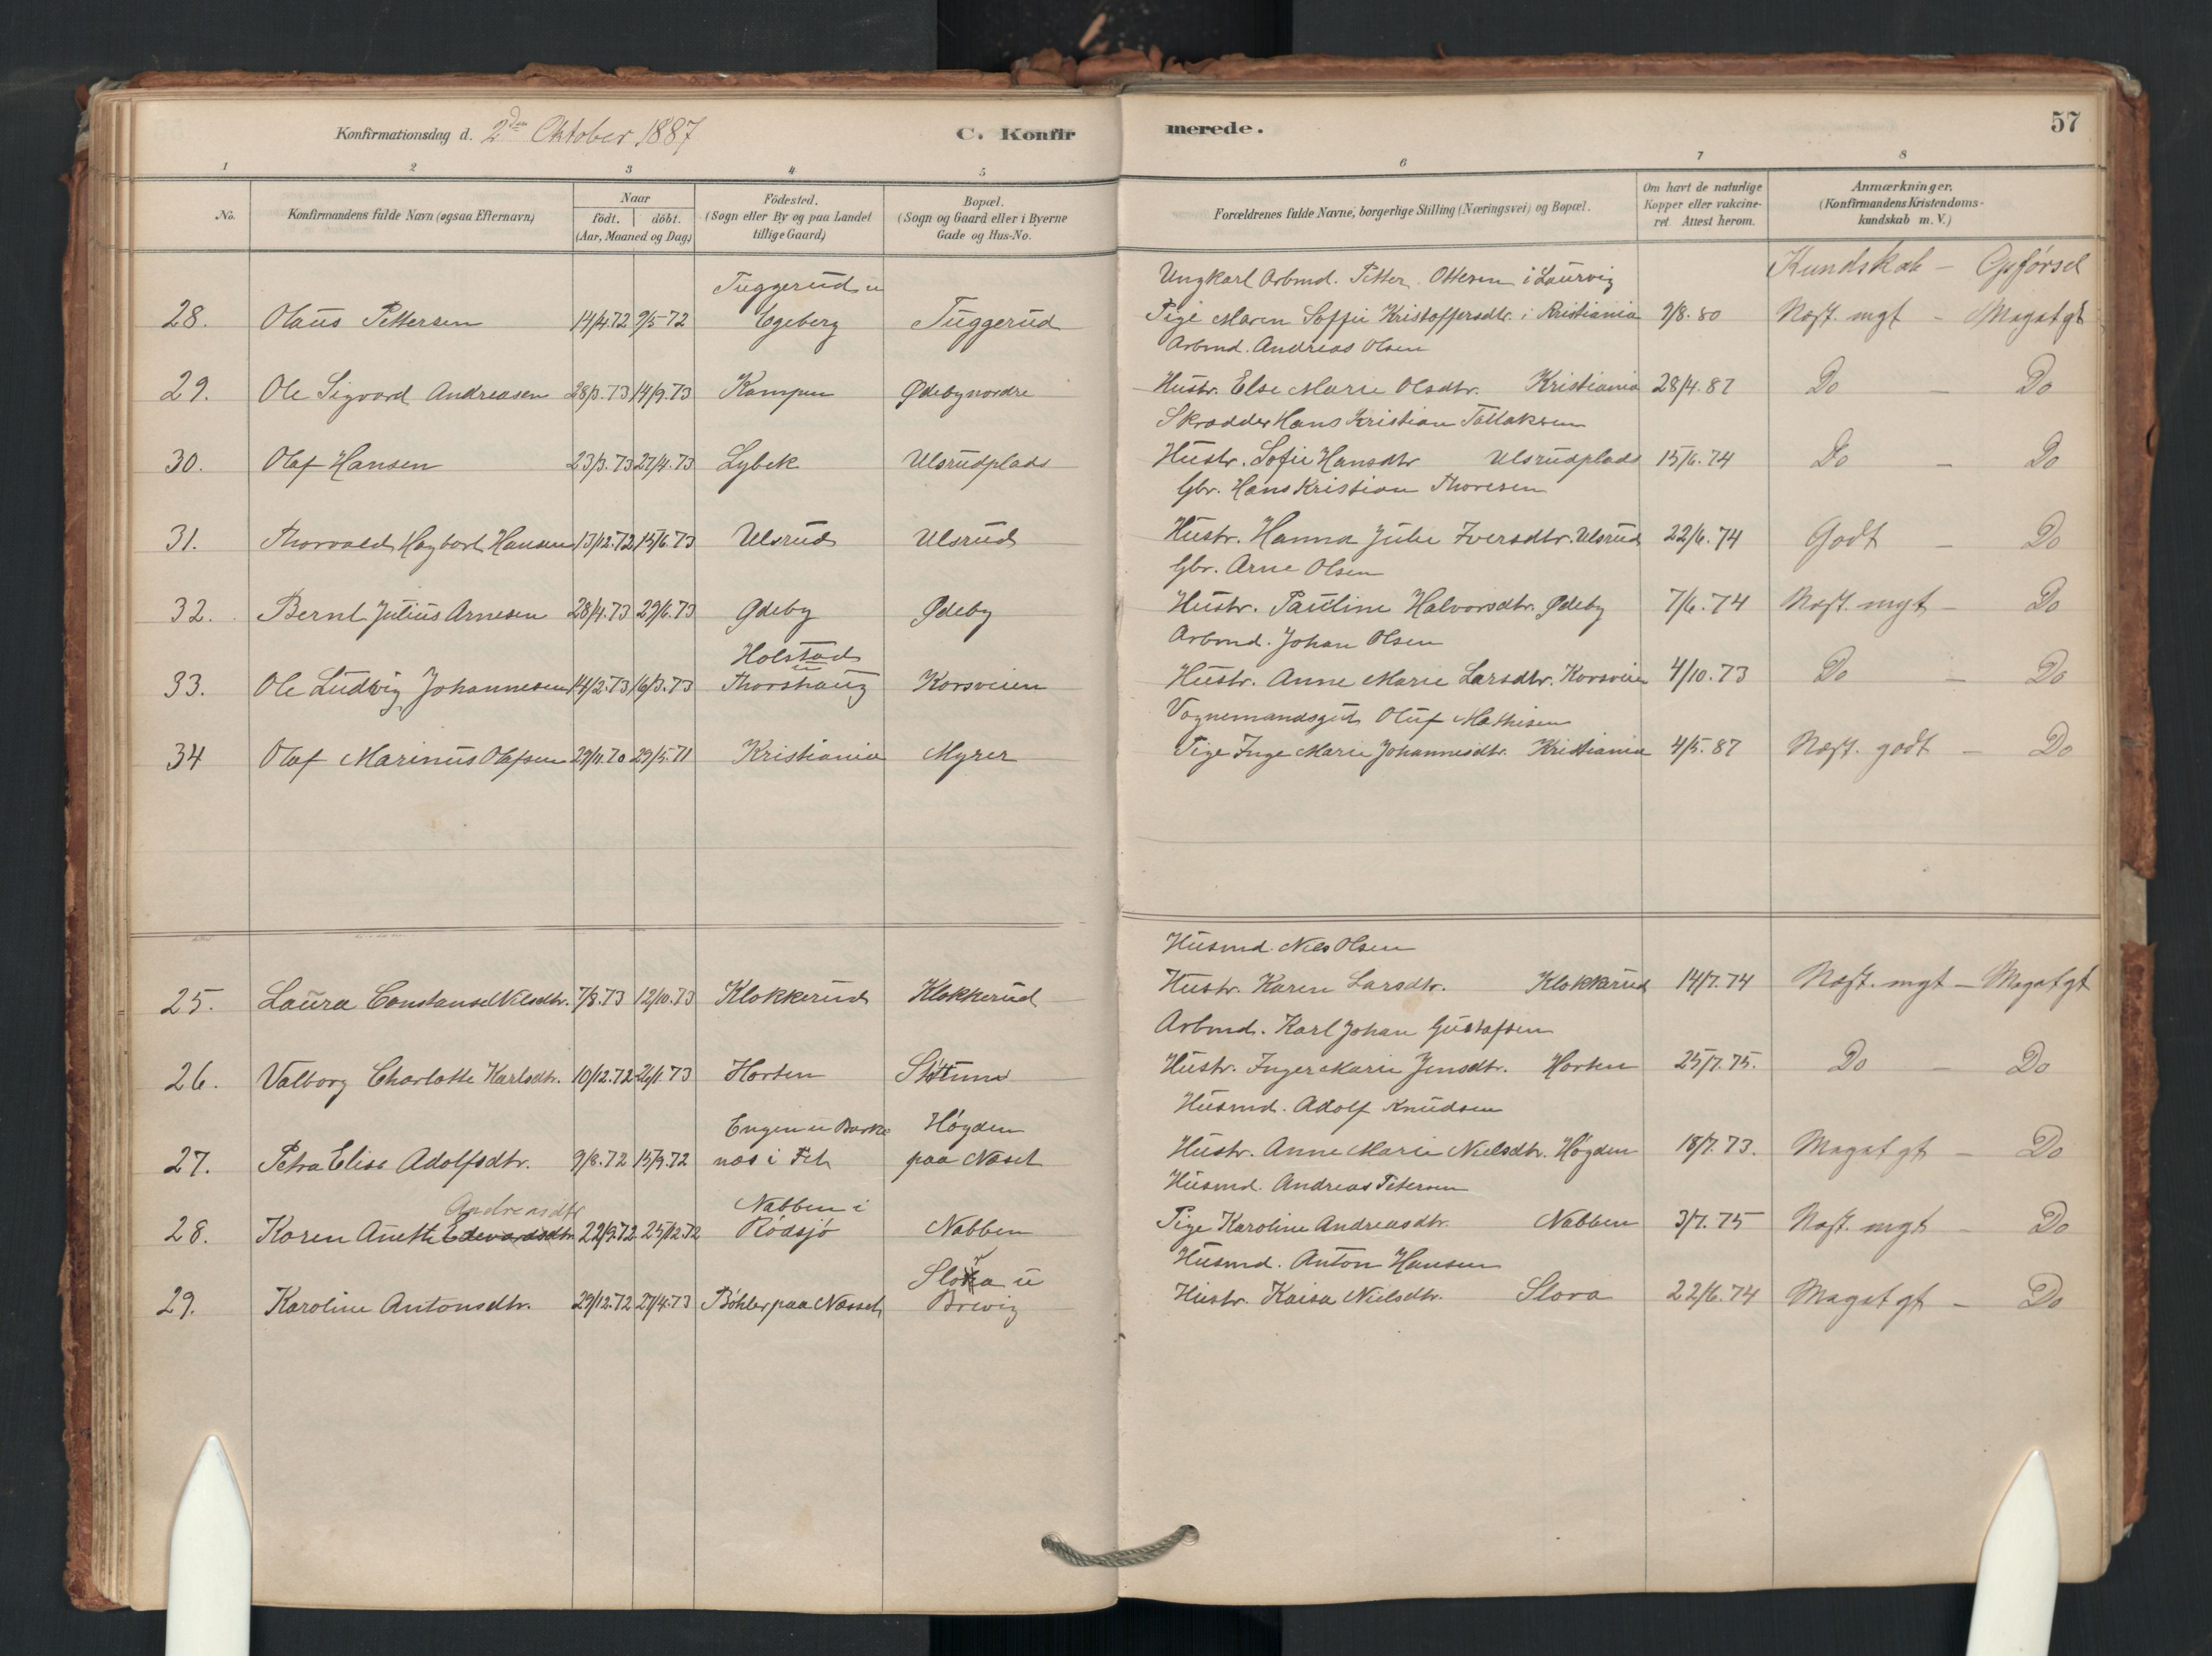 Konfirmationsdag d. 2den Oktober 1887
C. Konfirmerede.
57
1 2 3 4 5 6 7 8
No.
Konfirmandens fulde Navn (ogsaa Efternavn)
Naar
födt. döbt.
(Aar, Maaned og Dag)
Födested.
(Sogn eller By og paa Landet
tillige Gaard)
Bopæl.
(Sogn og Gaard eller i Byerne
Gade og Hus-No.
Forældrenes fulde Navne, borgerlige Stilling (Næringsvei) og Bopæl.
Om havt de naturlige
Kopper eller vakcine-
ret Attest herom.
Anmærkninger,
(Konfirmandens Kristendoms-
kundskab m. V.)
Kundskab - Opførsel
Tuggerud u Ungkarl Arbmd. Petter Ottersen i Laurvig
28. Olaus Pettersen 14/4.72 9/5 72 Egeberg Tuggerud Pige Maren Soffie Kristoffersdtr. i Kristiania 9/8.80 Næst. mgt - Megetgt
Arbmd. Andreas Olsen
29. Ole Sigvard Andreasen 28/3.73 14/9.73 Kampen Ødeby nordre Hustr. Else Marie Olsdtr. Kristiania 28/4.87 Do - Do
Skrædder Hans Kristian Tollaksen
30. Olaf Hansen 23/3.73 27/4.73 Lybek Ulsrudplads Hustr. Sofie Hansdtr Ulsrudplads 15/6.74 Do - Do
Gbr. Hans Kristian Thoresen
31. Thorvald Hagbart Hansen 13/12.72 15/6.73 Ulsrud Ulsrud Hustr. Hanna Julie Iversdtr. Ulsrud 22/6.74 Godt - Do
Gbr. Arne Olsen
32. Bernt Julius Arnesen 28/4.73 29/6.73 Ødeby Ødeby Hustr. Pauline Halvorsdtr. Ødeby 7/6.74 Næst. mgt - Do
Holstad u Arbmd. Johan Olsen
33. Ole Ludvig Johannesen 14/2.73 16/3.73 Thorshaug Korsveien Hustr. Anne Marie Larsdtr. Korsveien 4/10.73 Do - Do
Vognemandsgut Oluf Mathisen
34 Olaf Marinus Olafsen 29/11.70 29/5.71 Kristiania Myrer Pige Inge Marie Johannesdtr. Kristiania 4/5.87 Næst. godt - Do
Husmd. Nils Olsen
25. Laura Constanse Nilsdtr. 7/8.73 12/10.73 Klokkerud Klokkerud Hustr. Karen Larsdtr. Klokkerud 14/7.74 Næst. mgt - Megetgt
Arbmd. Karl Johan Gustafsen
26. Valborg Charlotte Karlsdtr. 10/12.72 26/1.73 Horten Støttum Hustr. Inger Marie Jensdtr. Horten 25/7.75. Do - Do
Engen u Barke Høgden Husmd. Adolf Knudsen
27. Petra Elise Adolfsdtr. 9/8.72 15/9.72 næs i Feh paa Næset Hustr. Anne Marie Nielsdtr. Høgden 18/7.73. Megetgt - Do
Andreasdtr Nabben i Husmd. Andreas Petersen
28. Karen Anette Edevardsdtr 22/9.72 25/12 72 Rødsjø Nabben Pige Karoline Andreasdtr. Nabben 3/7.75 Næst. mgt - Do
Slora u Husmd. Anton Hansen
29. Karoline Antonsdtr. 29/12.72 27/4.73 Bøhler paa Næsset Brevig Hustr. Kaisa Nielsdtr. Slora 22/6.74 Megetgt - Do